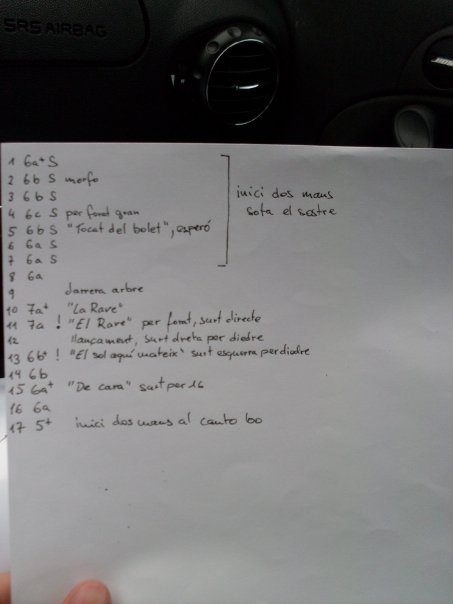 SRS AIRBAG
1 6a+ S
2 6b S morfo
3 6b S
4 6c S per forat gran
5 6b S "Tocat del bolet", esperó
6 6a S
7 6a S
inici dos mans
sota el sostre
8 6a
9 darrera arbre
10 7a+ "La Rave"
11 7a ! "El Rave" per forat, surt directe
12 llançament, surt dreta per diedre
13 6b+ ! "El sol aquí mateix" surt esquerra per diedre
14 6b
15 6a+ "De cara" surt per 16
16 6a
17 5+ inici dos mans al canto bo